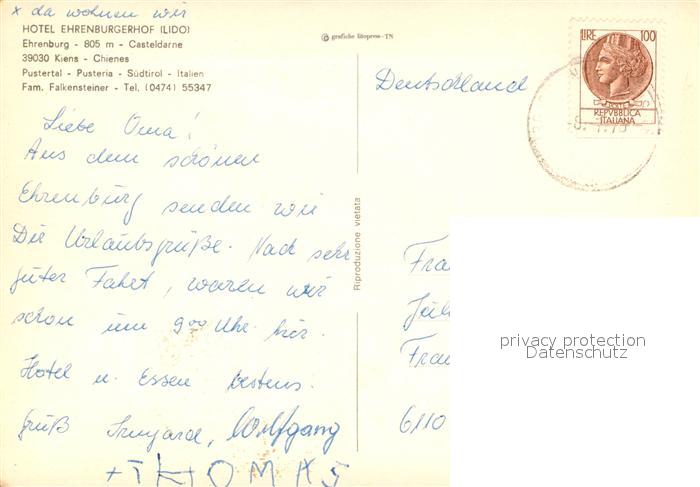 x da wohnen wir
HOTEL EHRENBURGERHOF (LIDO)
Ehrenburg - 805 m - Casteldarne
39030 Kiens - Chienes
Pustertal - Pusteria - Südtirol - Italien
Fam. Falkensteiner - Tel. (0474) 55347
Liebe Oma!
Aus dem schönen
Ehrenburg senden wir
Dir Urlaubsgrüße. Nach sehr
guter Fahrt, waren wir
schon um 9 00 Uhr hier.
Hotel u. Essen bestens.
Gruß Irmgard, Wolfgang
+ THOMAS
© grafiche litopress-TN
Riproduzione vietata
LIRE 100
REPVBBLICA
ITALIANA
Deutschland
Frau
Fran
6110
privacy protection
Datenschutz